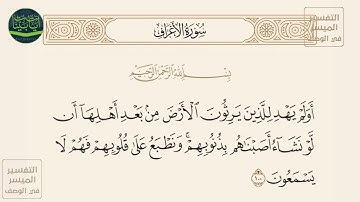 سُورَةُ الأَعْرَافِ
التفسير
الميسر
في الوصف
بِسْمِ اللَّهِ الرَّحْمَٰنِ الرَّحِيمِ
أَوَلَمْ يَهْدِ لِلَّذِينَ يَرِثُونَ ٱلْأَرْضَ مِنۢ بَعْدِ أَهْلِهَآ أَن
لَّوْ نَشَآءُ أَصَبْنَٰهُم بِذُنُوبِهِمْ ۚ وَنَطْبَعُ عَلَىٰ قُلُوبِهِمْ فَهُمْ لَا
يَسْمَعُونَ ١٠٠
التفسير
الميسر
في الوصف